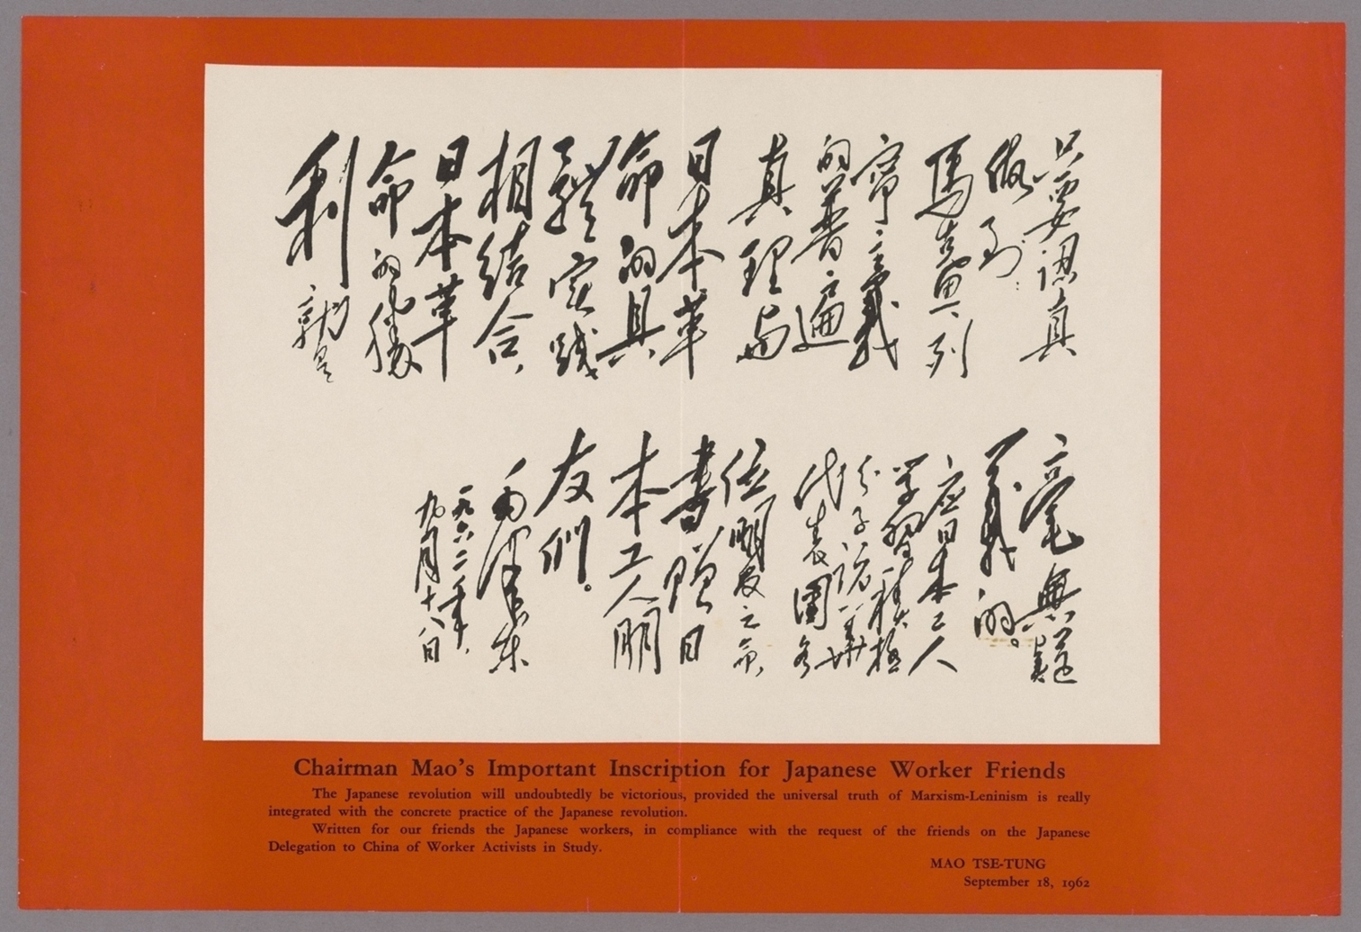 只要認真
做到
馬克思列
寧主義
的普遍
真理与
日本革
命的具
體实践
相結合，
日本革
命的勝
利就是
毫無疑
義的。
应日本工人
学習積極
分子訪華
代表團各
位朋友之命，
書贈日
本工人朋
友們。
毛澤東
一九六二年，
九月十八日
Chairman Mao's Important Inscription for Japanese Worker Friends
The Japanese revolution will undoubtedly be victorious, provided the universal truth of Marxism-Leninism is really
integrated with the concrete practice of the Japanese revolution.
Written for our friends the Japanese workers, in compliance with the request of the friends on the Japanese
Delegation to China of Worker Activists in Study.
MAO TSE-TUNG
September 18, 1962